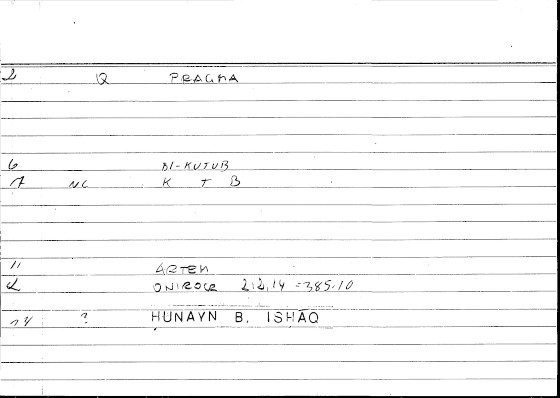 2 Q PRAGMA
6 BI-KUTUB
7 NC K T B
11 ARTEM
12 ONIROCR 212,14 = 385.10
14 ? HUNAYN B. ISHĀQ